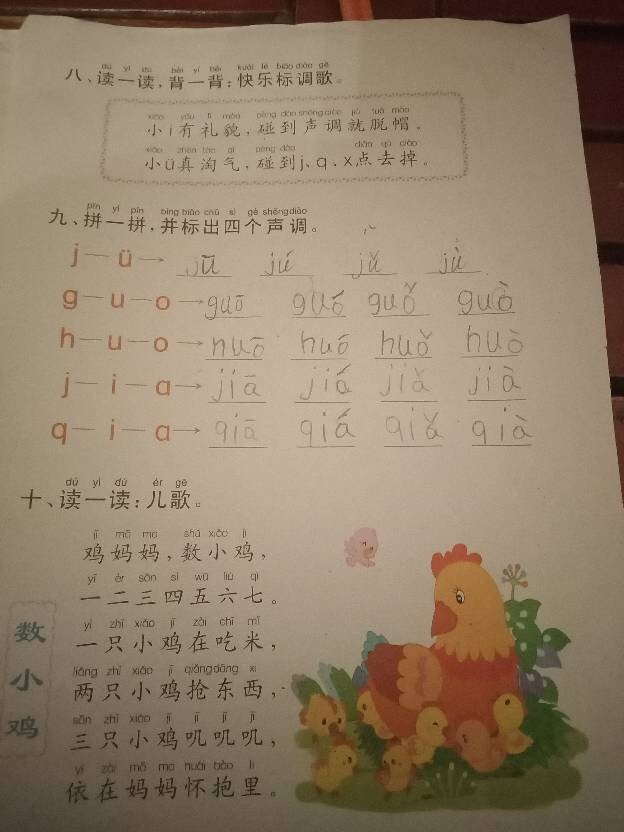 dú yì dú bèi yí bèi kuài lè biāo diào gē
八、读一读，背一背：快乐标调歌。
xiǎo yǒu lǐ mào pèng dào shēng diào jiù tuō mào
小i有礼貌，碰到声调就脱帽。
xiǎo zhēn táo qì pèng dào diǎn qù diào
小ü真淘气，碰到j、q、x点去掉。
pīn yì pīn bìng biāo chū sì gè shēng diào
九、拼一拼，并标出四个声调。
j—ü→ jǖ jú jǚ jǜ
g—u—o→ guō guó guǒ guò
h—u—o→ huō huó huǒ huò
j—i—a→ jiā jiá jiǎ jià
q—i—a→ qiā qiá qiǎ qià
dú yì dú ér gē
十、读一读：儿歌。
数小鸡
jī mā ma shǔ xiǎo jī
鸡妈妈，数小鸡，
yī èr sān sì wǔ liù qī
一二三四五六七。
yì zhī xiǎo jī zài chī mǐ
一只小鸡在吃米，
liǎng zhī xiǎo jī qiǎng dōng xi
两只小鸡抢东西，
sān zhī xiǎo jī jī jī jī
三只小鸡叽叽叽，
yī zài mā ma huái bào lǐ
依在妈妈怀抱里。